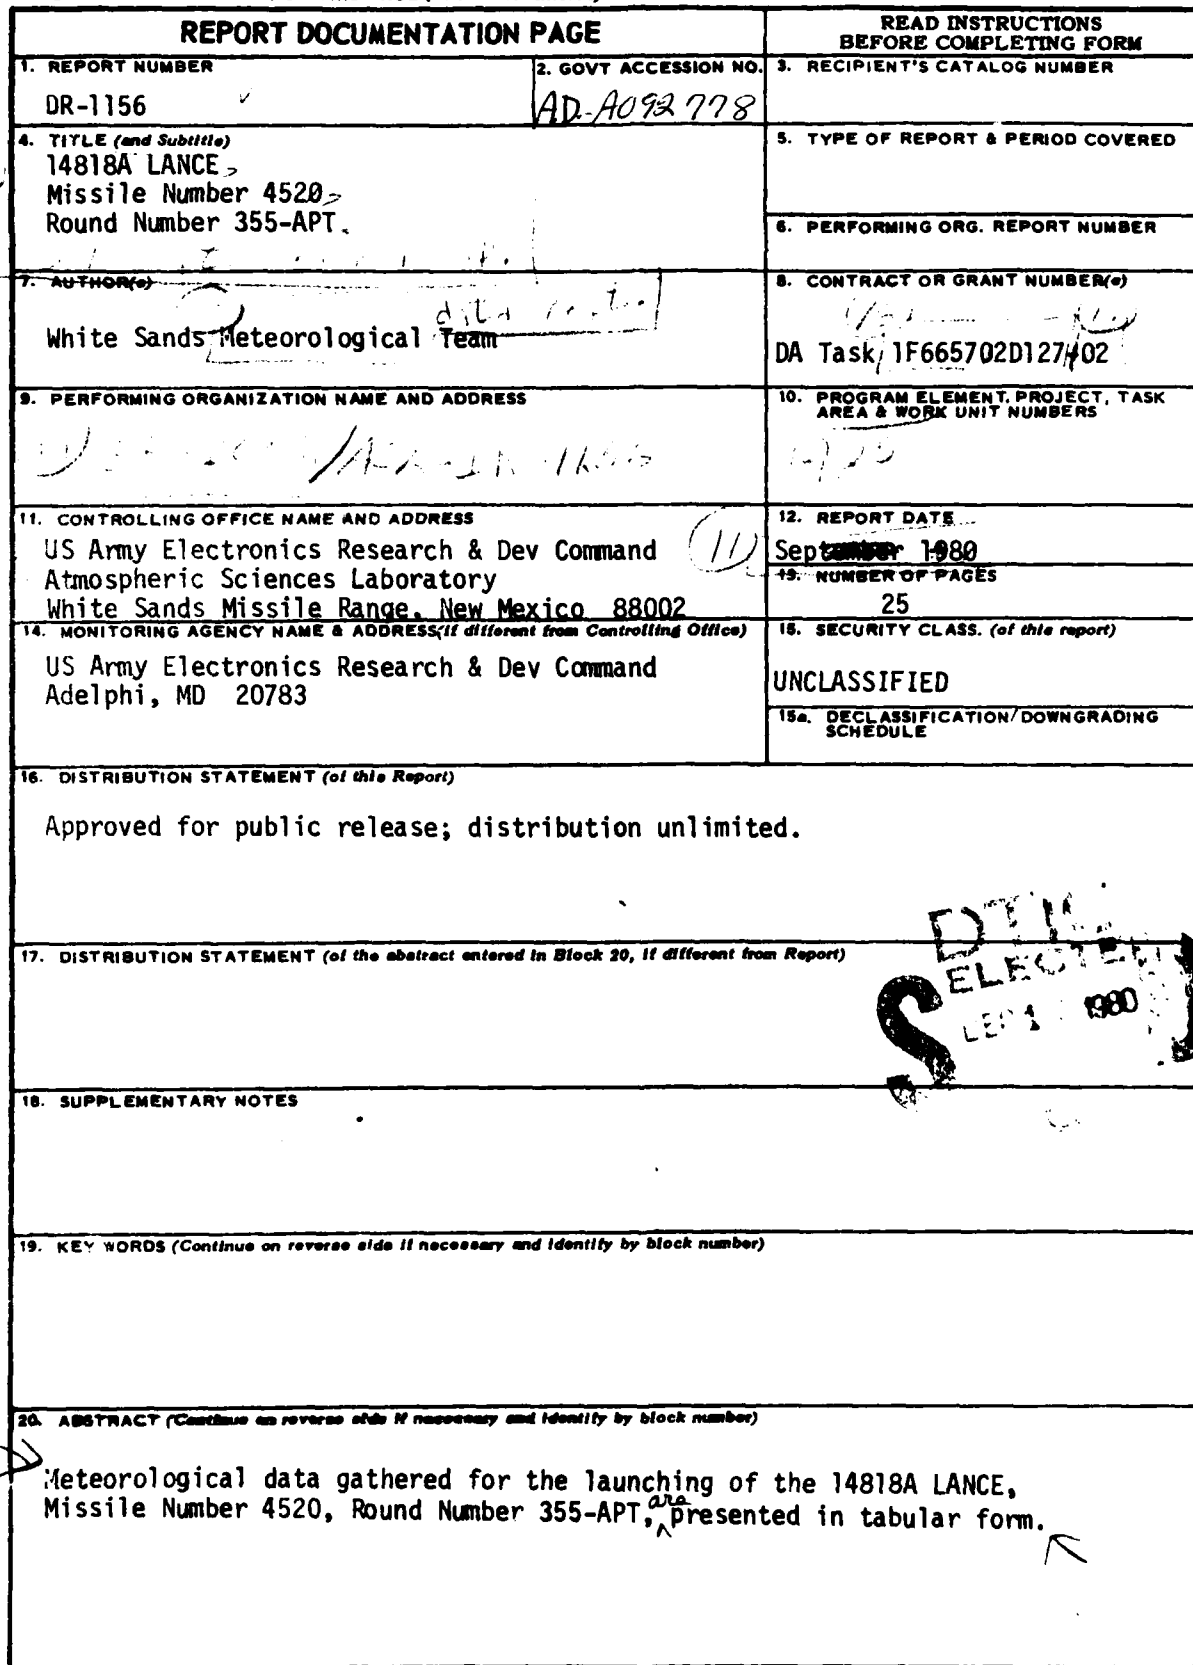 REPORT DOCUMENTATION PAGE
READ INSTRUCTIONS
BEFORE COMPLETING FORM
1. REPORT NUMBER
DR-1156
2. GOVT ACCESSION NO.
AD-A092 778
3. RECIPIENT'S CATALOG NUMBER
4. TITLE (and Subtitle)
14818A LANCE
Missile Number 4520
Round Number 355-APT.
5. TYPE OF REPORT & PERIOD COVERED
6. PERFORMING ORG. REPORT NUMBER
7. AUTHOR(s)
White Sands Meteorological Team
8. CONTRACT OR GRANT NUMBER(s)
DA Task 1F665702D127-02
9. PERFORMING ORGANIZATION NAME AND ADDRESS
10. PROGRAM ELEMENT, PROJECT, TASK
AREA & WORK UNIT NUMBERS
11. CONTROLLING OFFICE NAME AND ADDRESS
US Army Electronics Research & Dev Command
Atmospheric Sciences Laboratory
White Sands Missile Range, New Mexico 88002
11
12. REPORT DATE
September 1980
13. NUMBER OF PAGES
25
14. MONITORING AGENCY NAME & ADDRESS(if different from Controlling Office)
US Army Electronics Research & Dev Command
Adelphi, MD 20783
15. SECURITY CLASS. (of this report)
UNCLASSIFIED
15a. DECLASSIFICATION/DOWNGRADING
SCHEDULE
16. DISTRIBUTION STATEMENT (of this Report)
Approved for public release; distribution unlimited.
17. DISTRIBUTION STATEMENT (of the abstract entered in Block 20, if different from Report)
DTIC
ELECTE
1980
S
18. SUPPLEMENTARY NOTES
19. KEY WORDS (Continue on reverse side if necessary and identify by block number)
20. ABSTRACT (Continue on reverse side if necessary and identify by block number)
Meteorological data gathered for the launching of the 14818A LANCE,
Missile Number 4520, Round Number 355-APT, are presented in tabular form.